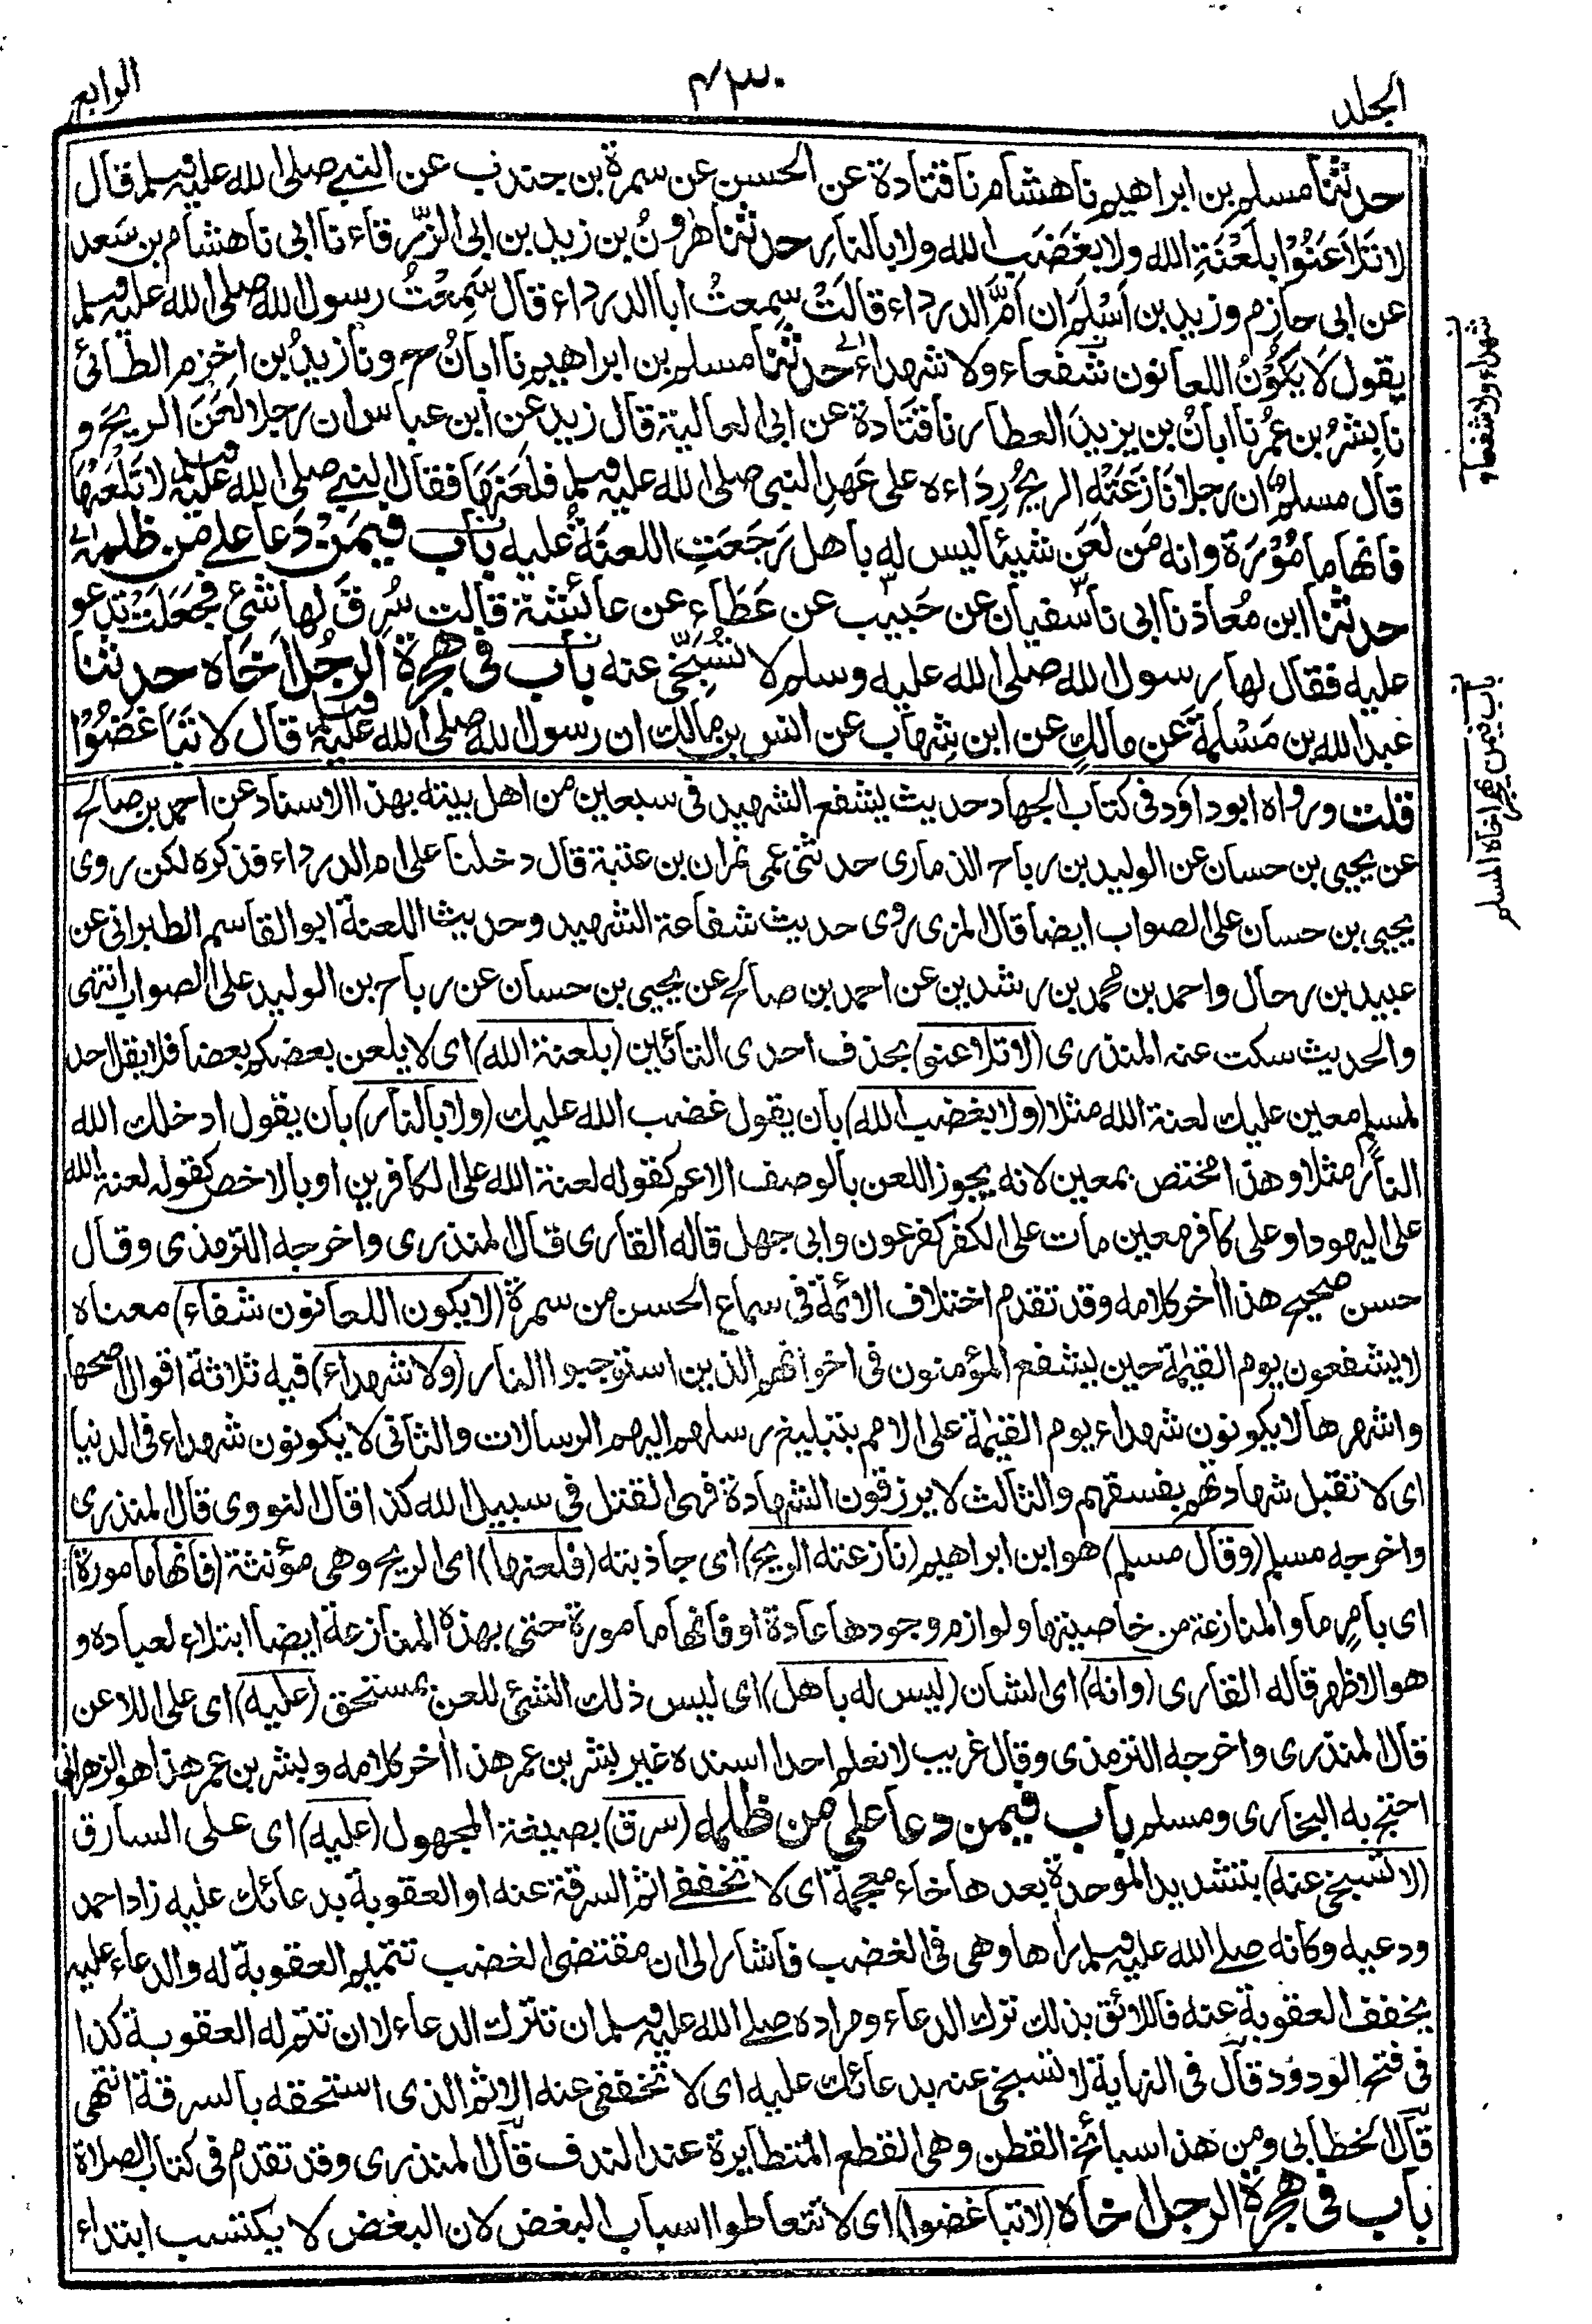 الجلد
٤٣٠
الرابع
حدثنا مسلم بن ابراهيم نا هشام نا قتادة عن الحسن عن سمرة بن جندب عن النبي صلى الله عليه وسلم قال
لا تَلَاعَنُوْا بلَعْنَةِ الله ولا بغَضَبِ الله ولا بالنار حدثنا هٰرونُ بن زيد بن ابى الزَّرقاء نا ابى نا هشام بن سَعد
عن ابى حازم وزيد بن اَسْلَمَ ان اُمَّ الدرداء قالَتْ سمعتُ ابا الدرداء قال سَمِعْتُ رسول الله صلى الله عليه وسلم
يقول لَا يَكُوْنُ اللعانون شفعاء ولا شهداء حدثنا مسلم بن ابراهيم نا ابانُ ح ونا زيدُ بن اخزم الطائى
نا بشرُ بن عُمَرَ نا ابانُ بن يزيدَ العطار نا قَتَادةَ عن ابى العالية قال زيد عن ابن عباس ان رجلا لَعَنَ الريحَ و
قال مسلمٌ ان رجلا نَازَعَتْه الريحُ رِدَاءه على عَهدِ النبى صلى الله عليه وسلم فلَعَنَهَا فقال النبي صلى الله عليه وسلم لا تَلْعَنْهَا
فانها مامُوْرَة وانه مَن لعَن شيئا ليس له باهل رَجَعَتِ اللعنَةُ عليه باب فيمَنْ دَعا على من ظلمه
حدثنا ابن مُعاذ نا ابى نا سفيان عن حَبيب عن عَطَاء عن عائشة قالت سُرِقَ لها شئ فجعَلَتْ تدعو
عليه فقال لها رسول الله صلى الله عليه وسلم لا تُسَبِّخِى عنه باب فى هجرة الرجُل اَخَاه حدثنا
عبد الله بن مَسْلمَةَ عَن مالكٍ عن ابن شِهاب عن انس بن مالك ان رسول الله صلى الله عليه وسلم قال لا تَبَاغَضُوْا
شهداء ولا شفعاء
باب فيمن يهجر اخاه المسلم
قلت ورواه ابوداؤد فى كتاب الجهاد حديث يشفع الشهيد فى سبعين من اهل بيته بهذا الاسناد عن احمد بن صالح
عن يحيى بن حسان عن الوليد بن رباح الذمارى حدثنى عمى نمران بن عتبة قال دخلنا على ام الدرداء فذكره لكن روى
يحيى بن حسان على الصواب ايضا قال المزى روى حديث شفاعة الشهيد وحديث اللعنة ابو القاسم الطبرانى عن
عبيد بن رحال واحمد بن محمد بن رشدين عن احمد بن صالح عن يحيى بن حسان عن رباح بن الوليد على الصواب انتهى
والحديث سكت عنه المنذرى (لا تلاعنوا) بحذف احدى التائين (بلعنة الله) اى لا يلعن بعضكم بعضا فلا يقل احد
لمسلم معين عليك لعنة الله مثلا (ولا بغضب الله) بان يقول غضب الله عليك (ولا بالنار) بان يقول ادخلك الله
النار مثلا وهذا مختص بمعين لانه يجوز اللعن بالوصف الاعم كقوله لعنة الله على الكافرين او بالاخص كقوله لعنة الله
على اليهود او على كافر معين مات على الكفر كفرعون وابى جهل قاله القارى قال المنذرى واخرجه الترمذى وقال
حسن صحيح هذا اٰخر كلامه وقد تقدم اختلاف الائمة فى سماع الحسن من سمرة (لا يكون اللعانون شفعاء) معناه
لا يشفعون يوم القيٰمة حين يشفع المؤمنون فى اخوانهم الذين استوجبوا النار (ولا شهداء) فيه ثلاثة اقوال اصحها
واشهرها لا يكونون شهداء يوم القيٰمة على الامم بتبليغ رسلهم اليهم الرسالات والثانى لا يكونون شهداء فى الدنيا
اى لا تقبل شهادتهم بفسقهم والثالث لا يرزقون الشهادة وهى القتل فى سبيل الله كذا قال النووى قال المنذرى
واخرجه مسلم (وقال مسلم) هو ابن ابراهيم (نازعته الريح) اى جاذبته (فلعنها) اى الريح وهى مؤنثة (فانها مامورة)
اى بامرٍ ما والمنازعة من خاصيتها ولوازم وجودها عادة او فانها مامورة حتى بهذه المنازعة ايضا ابتلاء لعباده و
هو الاظهر قاله القارى (وانه) اى الشان (ليس له باهل) اى ليس ذلك الشئ للعن بمستحق (عليه) اى على اللاعن
قال المنذرى واخرجه الترمذى وقال غريب لا نعلم احدا اسنده غير بشر بن عمر هذا اٰخر كلامه وبشر بن عمر هذا هو الزهرانى
احتج به البخارى ومسلم باب فيمن دعا على من ظلمه (سرق) بصيغة المجهول (عليه) اى على السارق
(لا تسبخى عنه) بتشديد الموحدة بعدها خاء معجمة اى لا تخففى اثم السرقة عنه او العقوبة بدعائك عليه زاد احمد
ودعيه وكانه صلى الله عليه وسلم راٰها وهى فى الغضب فاشار الى ان مقتضى الغضب تتميم العقوبة له والدعاء عليه
يخفف العقوبة عنه فاللائق بذلك ترك الدعاء ومراده صلى الله عليه وسلم ان تترك الدعاء لا ان تتم له العقوبة كذا
فى فتح الودود قال فى النهاية لا تسبخى عنه بدعائك عليه اى لا تخففى عنه الاثم الذى استحقه بالسرقة انتهى
قال الخطابى ومن هذا سبائخ القطن وهى القطع المتطايرة عند الندف قال المنذرى وقد تقدم فى كتاب الصلاة
باب فى هجرة الرجل اخاه (لا تباغضوا) اى لا تتعاطوا اسباب البغض لان البغض لا يكتسب ابتداء